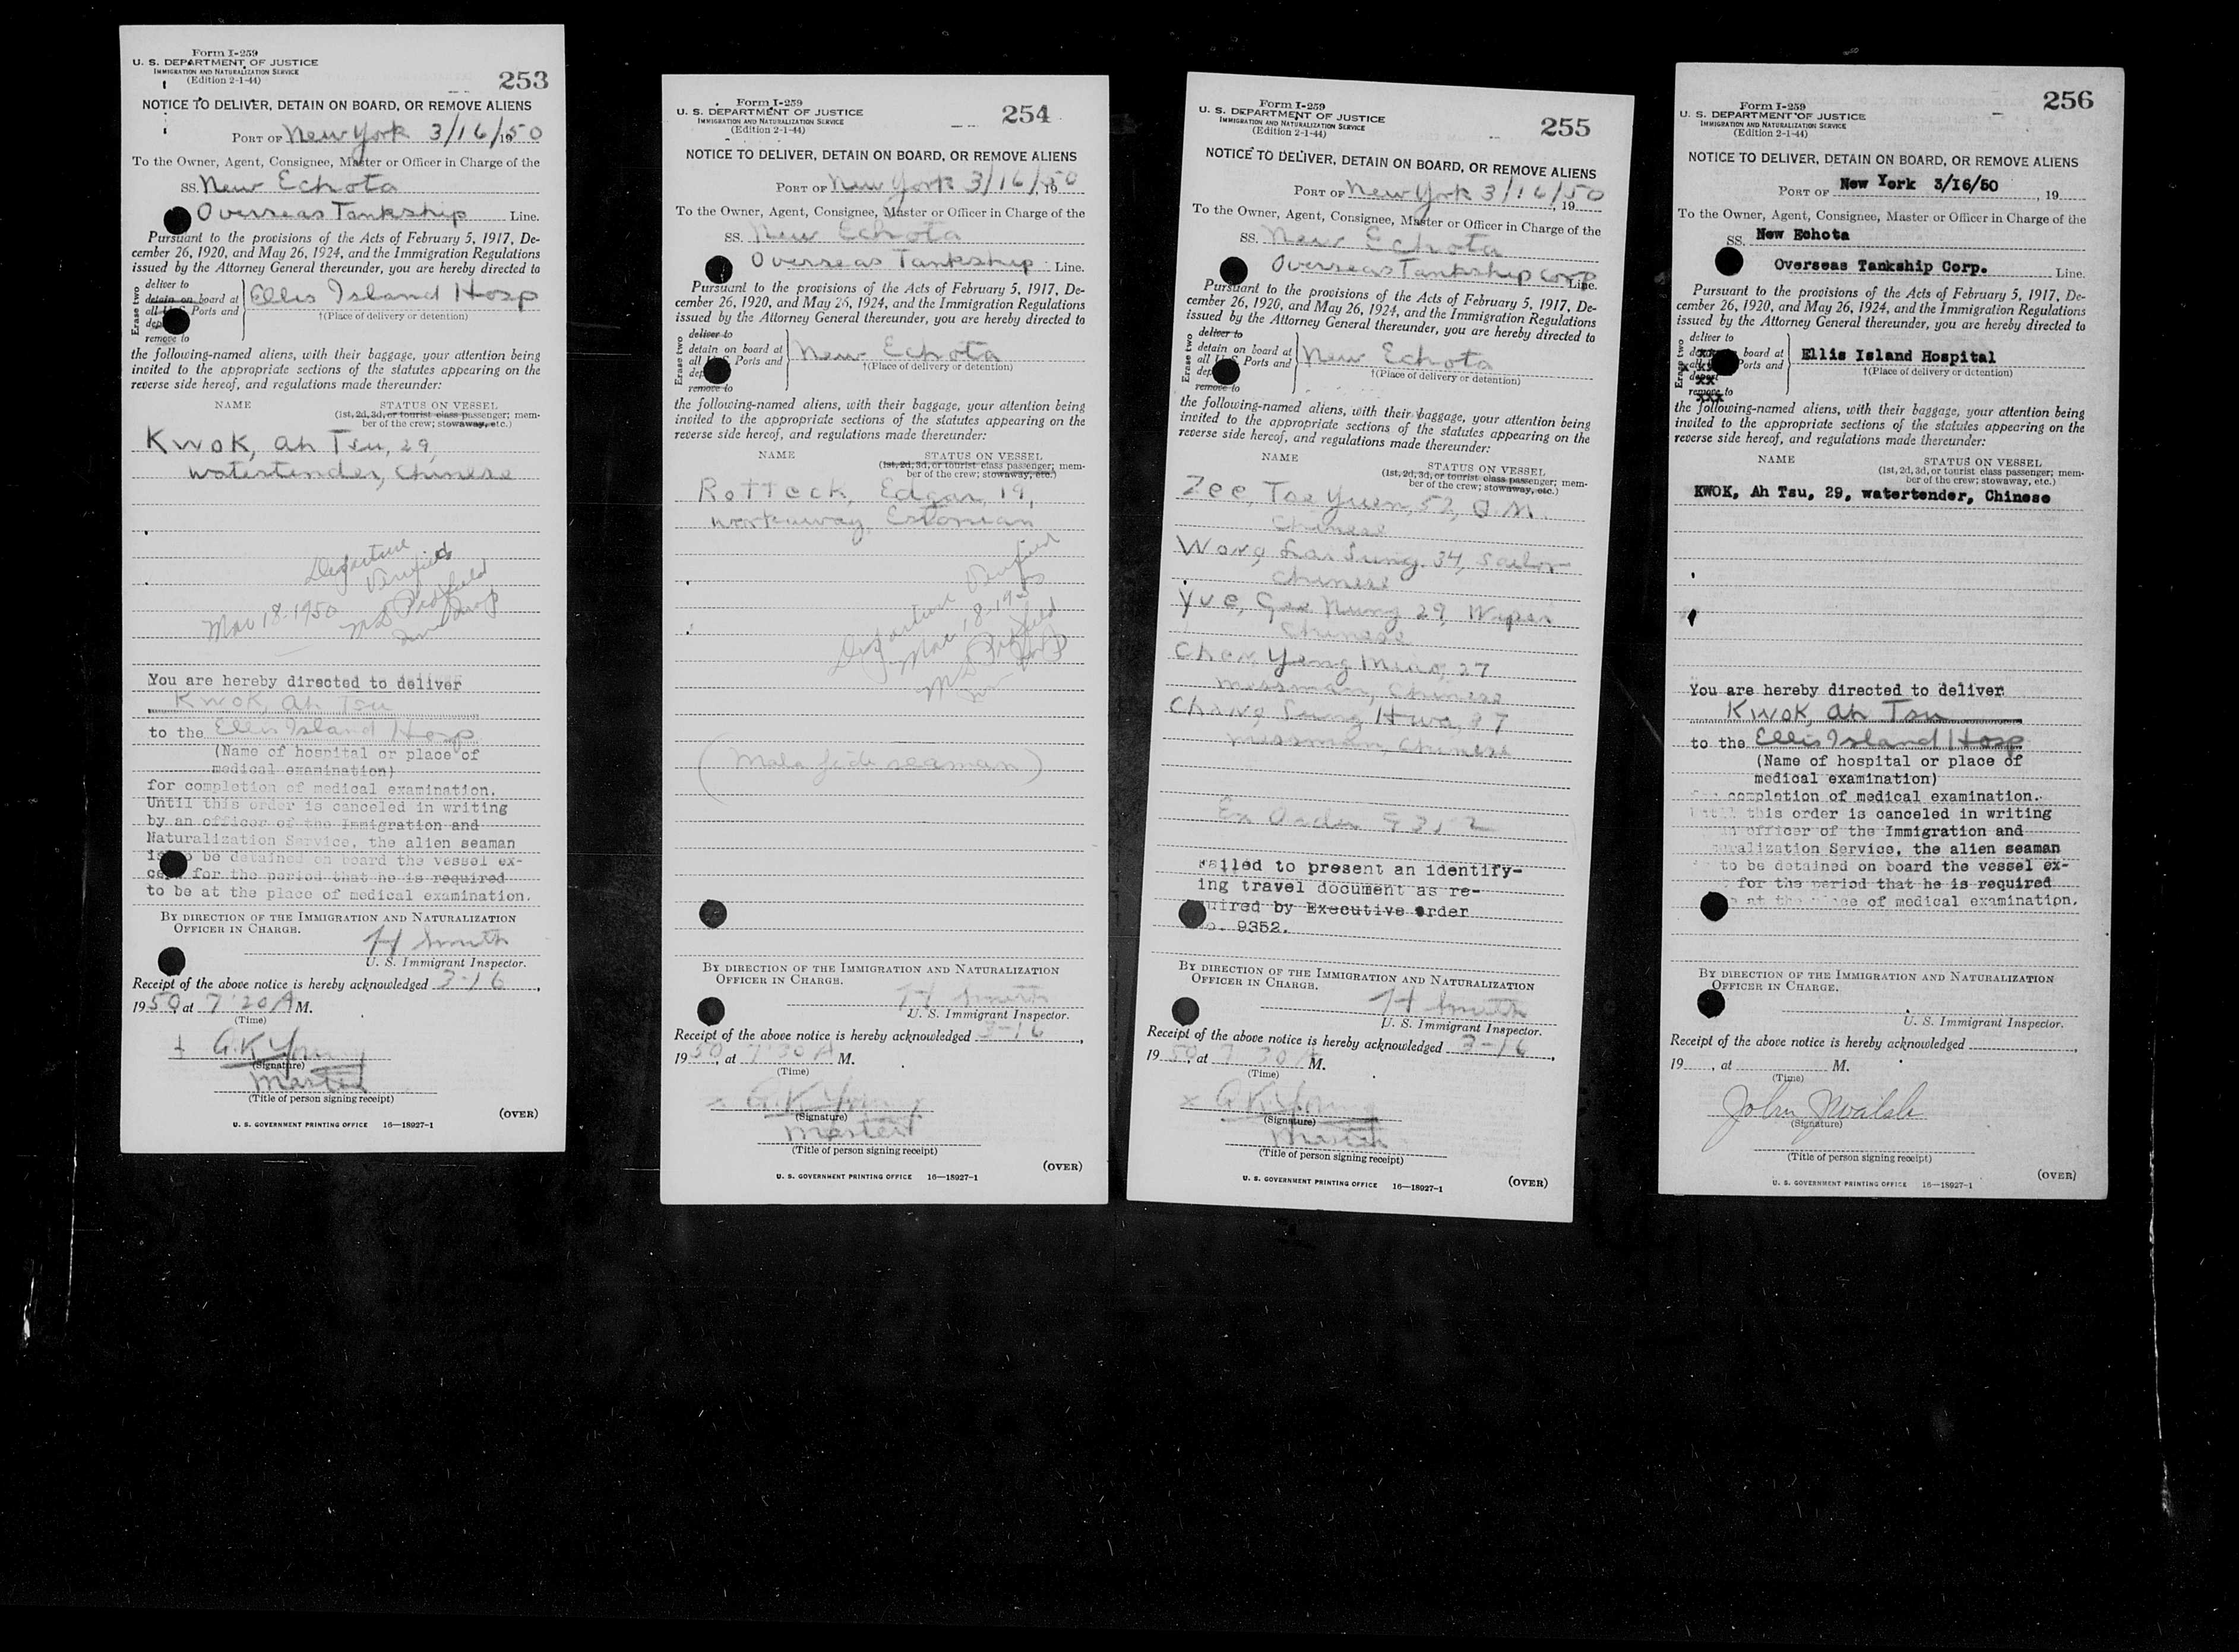 Form I-259
U. S. DEPARTMENT OF JUSTICE
IMMIGRATION AND NATURALIZATION SERVICE
(Edition 2-1-44)
253
NOTICE TO DELIVER, DETAIN ON BOARD, OR REMOVE ALIENS
PORT OF New York 3/16/1950
To the Owner, Agent, Consignee, Master or Officer in Charge of the
SS. New Echota
Overseas Tankship Line.
Pursuant to the provisions of the Acts of February 5, 1917, De-
cember 26, 1920, and May 26, 1924, and the Immigration Regulations
issued by the Attorney General thereunder, you are hereby directed to
Erase two
deliver to
detain on board at
all Ports and
remove to
Ellis Island Hosp
†(Place of delivery or detention)
the following-named aliens, with their baggage, your attention being
invited to the appropriate sections of the statutes appearing on the
reverse side hereof, and regulations made thereunder:
NAME STATUS ON VESSEL
(1st, 2d, 3d, or tourist class passenger; mem-
ber of the crew; stowaway, etc.)
Kwok, Ah Tsu, 29,
watertender, Chinese
Departure
Verified
Mar 18-1950
You are hereby directed to deliver
Kwok, Ah Tsu
to the Ellis Island Hosp
(Name of hospital or place of
medical examination)
for completion of medical examination.
Until this order is canceled in writing
by an officer of the Immigration and
Naturalization Service, the alien seaman
be detained on board the vessel ex-
for the period that he is required
to be at the place of medical examination.
BY DIRECTION OF THE IMMIGRATION AND NATURALIZATION
OFFICER IN CHARGE.
H Smith
U. S. Immigrant Inspector.
Receipt of the above notice is hereby acknowledged 3-16,
1950 at 7:20 A M.
(Time)
G.K. Young
(Signature)
Master
(Title of person signing receipt)
(OVER)
U. S. GOVERNMENT PRINTING OFFICE 16—18927-1
Form I-259
U. S. DEPARTMENT OF JUSTICE
IMMIGRATION AND NATURALIZATION SERVICE
(Edition 2-1-44)
254
NOTICE TO DELIVER, DETAIN ON BOARD, OR REMOVE ALIENS
PORT OF New York 3/16/, 1950
To the Owner, Agent, Consignee, Master or Officer in Charge of the
SS. New Echota
Overseas Tankship Line.
Pursuant to the provisions of the Acts of February 5, 1917, De-
cember 26, 1920, and May 26, 1924, and the Immigration Regulations
issued by the Attorney General thereunder, you are hereby directed to
Erase two
deliver to
detain on board at
all Ports and
remove to
New Echota
†(Place of delivery or detention)
the following-named aliens, with their baggage, your attention being
invited to the appropriate sections of the statutes appearing on the
reverse side hereof, and regulations made thereunder:
NAME STATUS ON VESSEL
(1st, 2d, 3d, or tourist class passenger; mem-
ber of the crew; stowaway, etc.)
Rotteck, Edgar, 19,
workaway, Estonian
Departure Verified
Mar 18-1950
(Mala fide seaman)
BY DIRECTION OF THE IMMIGRATION AND NATURALIZATION
OFFICER IN CHARGE.
H Smith
U. S. Immigrant Inspector.
Receipt of the above notice is hereby acknowledged 3-16,
1950, at 7:30 A M.
(Time)
x G.K. Young
(Signature)
Master
(Title of person signing receipt)
(OVER)
U. S. GOVERNMENT PRINTING OFFICE 16—18927-1
Form I-259
U. S. DEPARTMENT OF JUSTICE
IMMIGRATION AND NATURALIZATION SERVICE
(Edition 2-1-44)
255
NOTICE TO DELIVER, DETAIN ON BOARD, OR REMOVE ALIENS
PORT OF New York 3/16/50, 19
To the Owner, Agent, Consignee, Master or Officer in Charge of the
SS. New Echota
Overseas Tankship Corp Line.
Pursuant to the provisions of the Acts of February 5, 1917, De-
cember 26, 1920, and May 26, 1924, and the Immigration Regulations
issued by the Attorney General thereunder, you are hereby directed to
Erase two
deliver to
detain on board at
all Ports and
remove to
New Echota
†(Place of delivery or detention)
the following-named aliens, with their baggage, your attention being
invited to the appropriate sections of the statutes appearing on the
reverse side hereof, and regulations made thereunder:
NAME STATUS ON VESSEL
(1st, 2d, 3d, or tourist class passenger; mem-
ber of the crew; stowaway, etc.)
Zee, Tse Yuen, 52, Q.M.
Chinese
Wong, Sung, 34, Sailor
Chinese
Yue, Nung 29, Wiper
Chinese
Chan, Yeng Miao, 27
messman, Chinese
Chang, Sung Hwa,
messman, Chinese
Ex Order 9352
Failed to present an identify-
ing travel document as re-
quired by Executive order
9352.
BY DIRECTION OF THE IMMIGRATION AND NATURALIZATION
OFFICER IN CHARGE.
H Smith
U. S. Immigrant Inspector.
Receipt of the above notice is hereby acknowledged 3-16,
1950 at 7 30 A M.
(Time)
x G.K. Young
(Signature)
Master
(Title of person signing receipt)
(OVER)
U. S. GOVERNMENT PRINTING OFFICE 16—18927-1
Form I-259
U. S. DEPARTMENT OF JUSTICE
IMMIGRATION AND NATURALIZATION SERVICE
(Edition 2-1-44)
256
NOTICE TO DELIVER, DETAIN ON BOARD, OR REMOVE ALIENS
PORT OF New York 3/16/50, 19
To the Owner, Agent, Consignee, Master or Officer in Charge of the
SS. New Echota
Overseas Tankship Corp. Line.
Pursuant to the provisions of the Acts of February 5, 1917, De-
cember 26, 1920, and May 26, 1924, and the Immigration Regulations
issued by the Attorney General thereunder, you are hereby directed to
Erase two
deliver to
board at
Ports and
remove to
Ellis Island Hospital
†(Place of delivery or detention)
the following-named aliens, with their baggage, your attention being
invited to the appropriate sections of the statutes appearing on the
reverse side hereof, and regulations made thereunder:
NAME STATUS ON VESSEL
(1st, 2d, 3d, or tourist class passenger; mem-
ber of the crew; stowaway, etc.)
KWOK, Ah Tsu, 29, watertender, Chinese
You are hereby directed to deliver
Kwok, Ah Tsu
to the Ellis Island Hosp
(Name of hospital or place of
medical examination)
completion of medical examination.
this order is canceled in writing
officer of the Immigration and
Naturalization Service, the alien seaman
to be detained on board the vessel ex-
for the period that he is required
at the place of medical examination.
BY DIRECTION OF THE IMMIGRATION AND NATURALIZATION
OFFICER IN CHARGE.
U. S. Immigrant Inspector.
Receipt of the above notice is hereby acknowledged
19, at M.
(Time)
John J Walsh
(Signature)
(Title of person signing receipt)
(OVER)
U. S. GOVERNMENT PRINTING OFFICE 16—18927-1